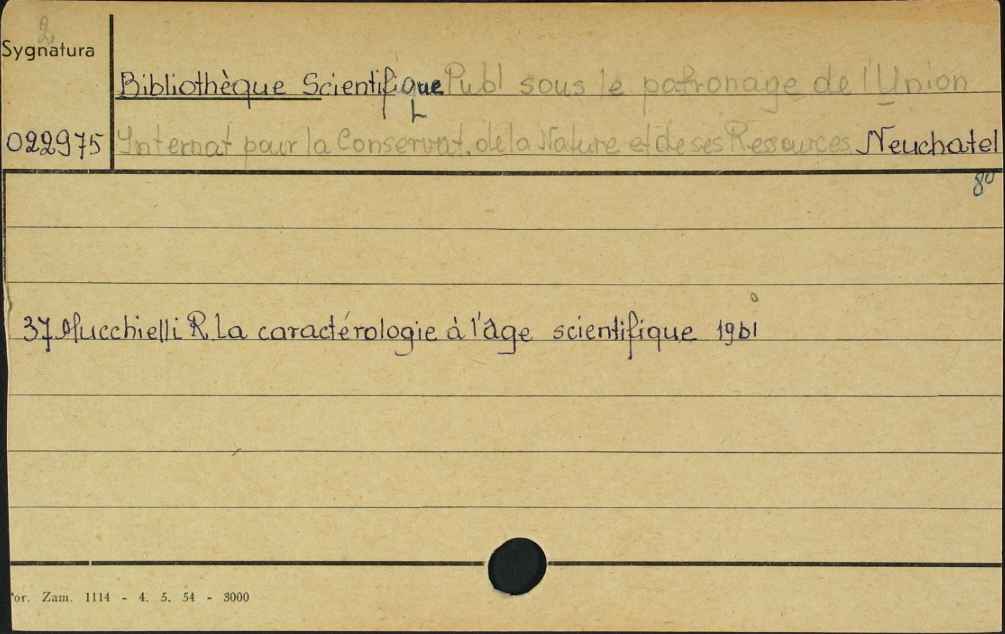 2
Sygnatura
Bibliothèque Scientifique Publ sous le patronage de l'Union
022975 Internat pour la Conservat. de la Nature et de ses Ressources. Neuchatel
8°
37 Mucchielli R. La caractérologie à l'âge scientifique 1961
or. Zam. 1114 - 4. 5. 54 - 3000